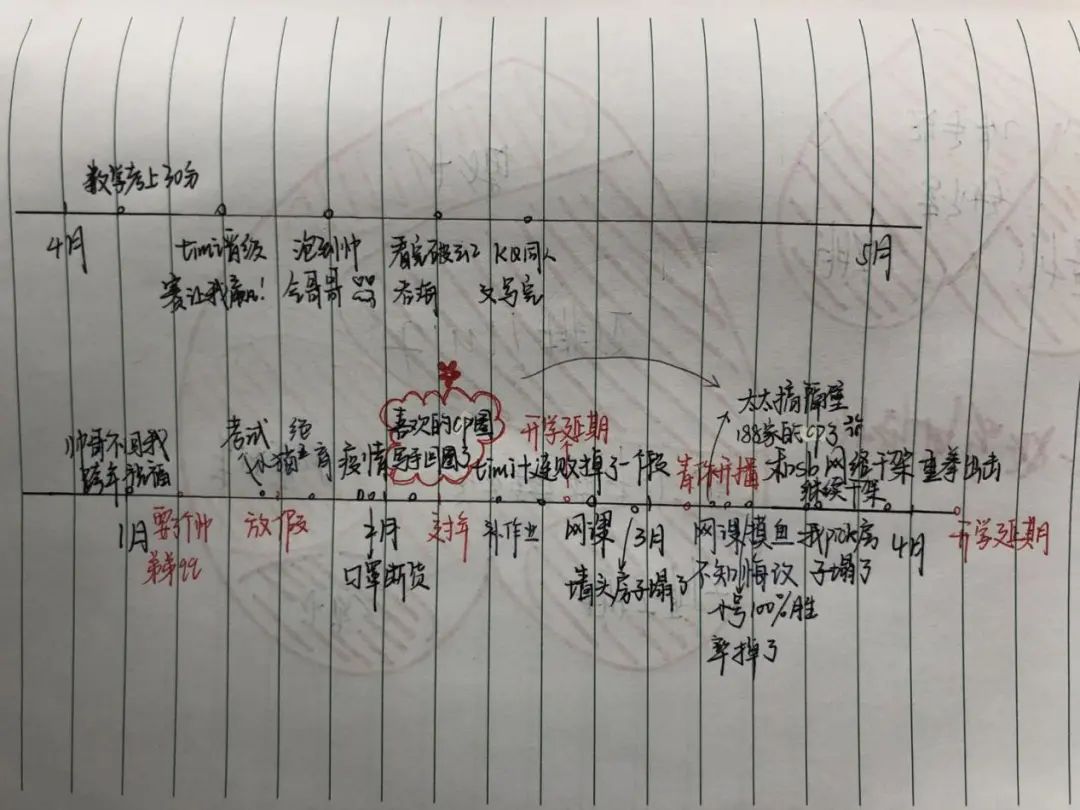 数学考上30分
4月
timi晋级
赛让我赢!
泡到帅
哥哥
看完破云2
吞海
KQ同人
文写完
5月
帅哥不回我
跨年祝福
考试
绝育
疫情
喜欢的CP圈
高手回圈了
开学延期
timi十连败掉了一个段
青你开播
太太搞隔壁
188家的CP了
和sb网络干架
继续干架
重拳出击
1月
要了个帅
弟弟qq
放假
2月
口罩断货
过年
补作业
网课
墙头房子塌了
3月
网课摸鱼
不知悔改
小号100%胜
率掉了
我pick房
子塌了
4月
开学延期